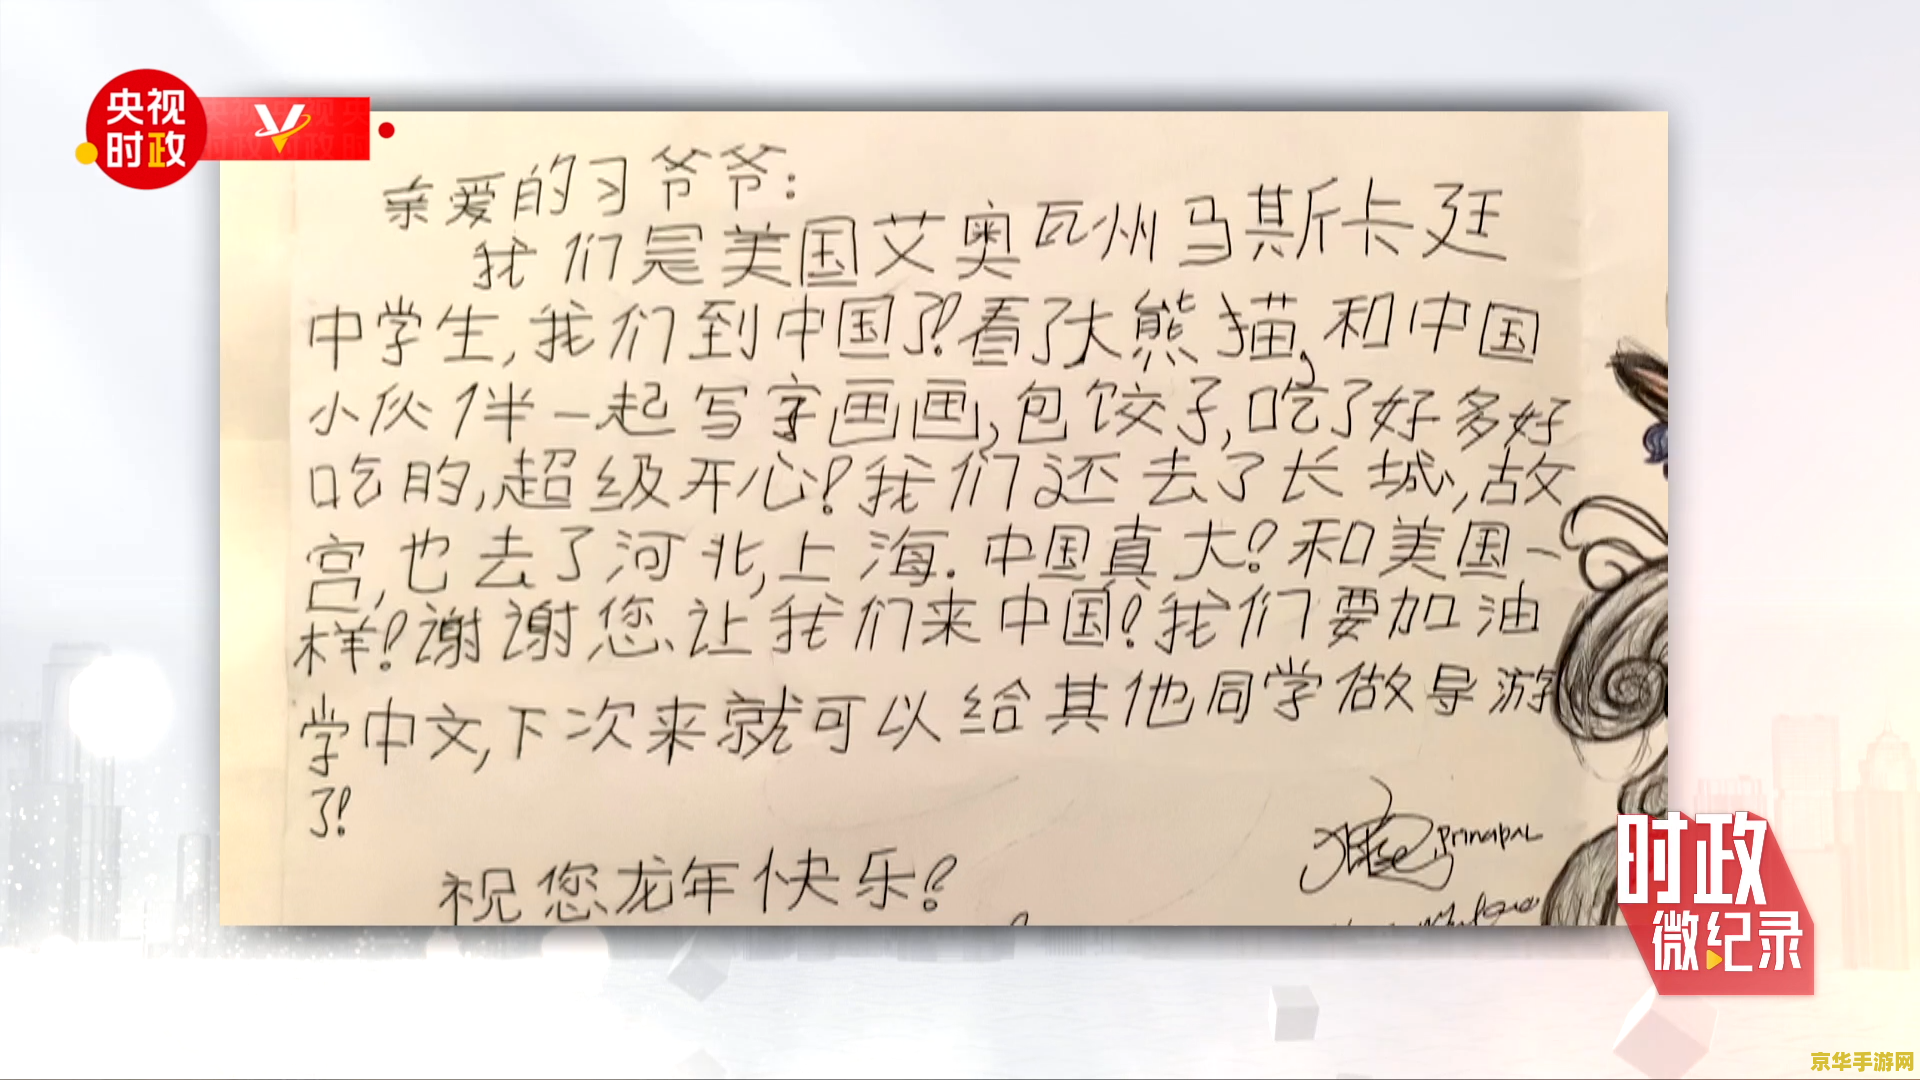 央视
时政
亲爱的习爷爷:
我们是美国艾奥瓦州马斯卡廷
中学生,我们到中国了!看了大熊猫,和中国
小伙伴一起写字画画,包饺子,吃了好多好
吃的,超级开心!我们还去了长城,故
宫,也去了河北,上海.中国真大!和美国一
样!谢谢您让我们来中国!我们要加油
学中文,下次来就可以给其他同学做导游
了!
祝您龙年快乐!
Principal
时政
微纪录
京华手游网